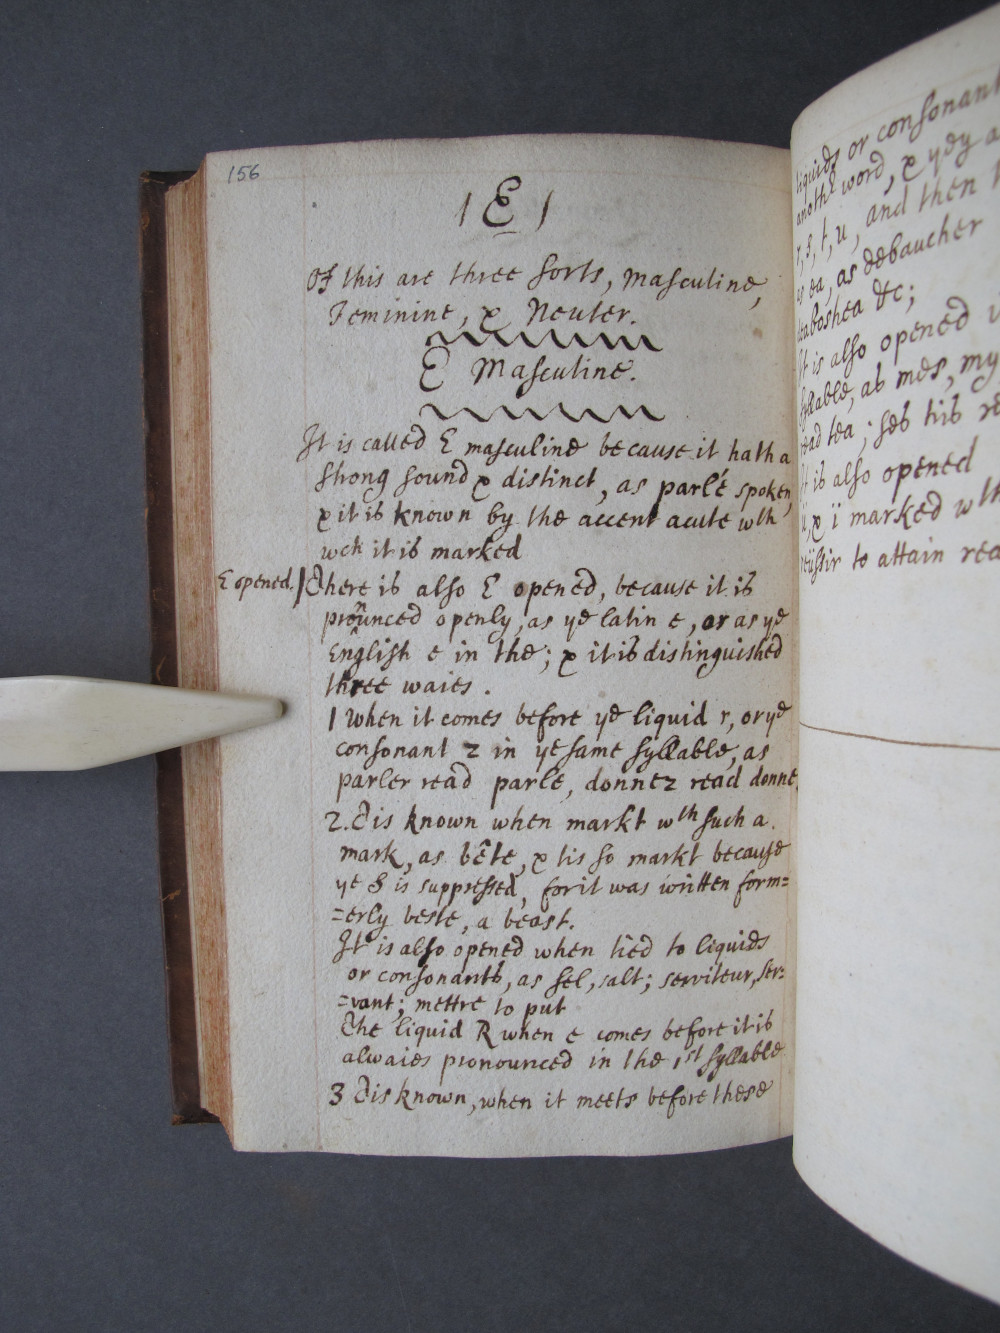 156
/ E /
Of this are three sorts, masculine,
Feminine, & Neuter.
E Masculine.
It is called E masculine because it hath a
strong sound & distinct, as parlé spoken,
& it is known by the accent acute wth
wch it is marked
E opened. / There is also E opened, because it is
pronunced openly, as ye latin e, or as ye
English e in the; & it is distinguished
three waies.
1 When it comes before ye liquid r, or ye
consonant z in ye same syllable, as
parler read parlé, donnez read donné,
2. Tis known when markt wth such a
mark, as bête, & tis so markt because
ye S is suppressed, for it was written form=
=erly beste, a beast.
It is also opened when tied to liquids
or consonants, as sel, salt; serviteur, ser=
=vant; mettre to put
The liquid R when e comes before it is
alwaies pronounced in the 1st syllable
3 Tis known, when it meets before these
liquids or consonant
anothr word, & yey a
r, s, t, u, and then
as ea, as debaucher
deaboshea &c;
It is also opened
syllable, as mes, my
read tea; ses his re
It is also opened
ü, & ï marked wth
reüssir to attain rea